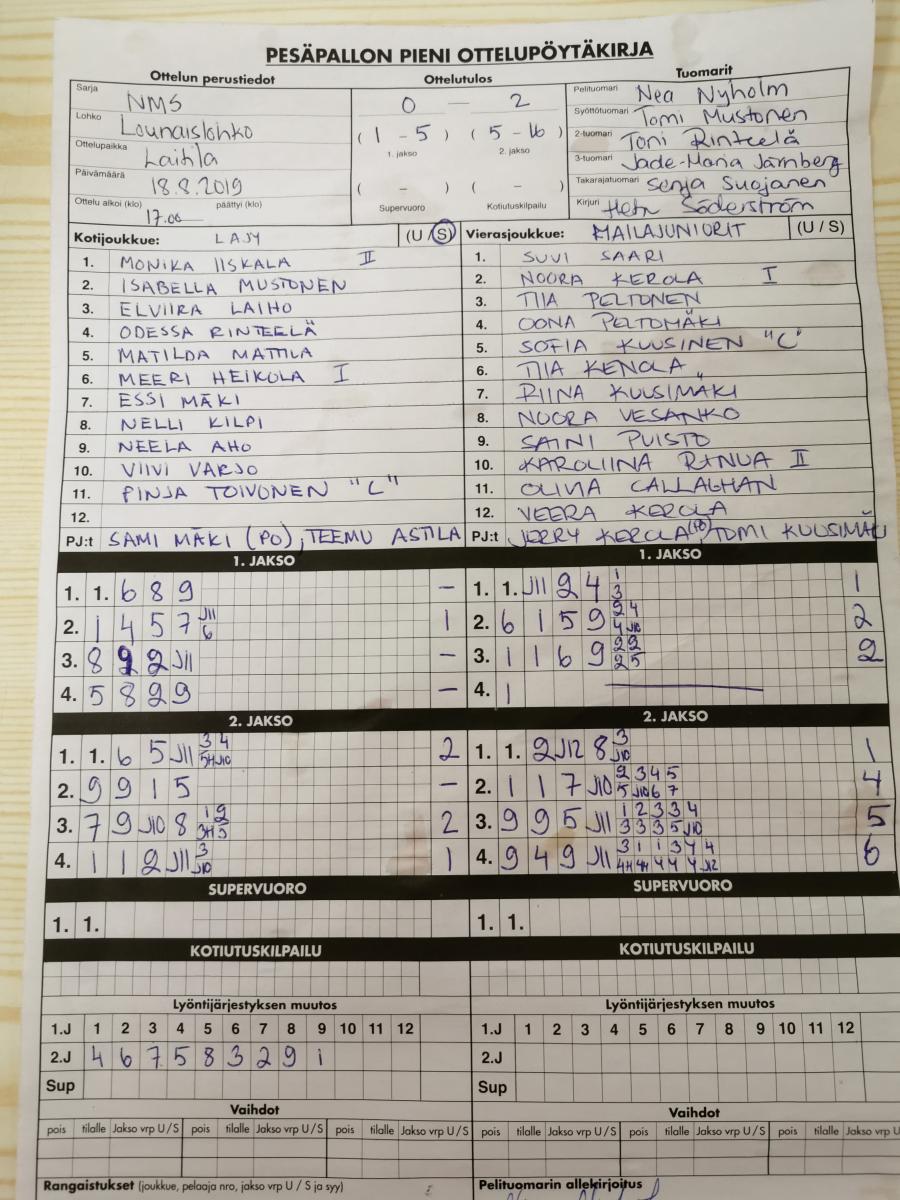 PESÄPALLON PIENI OTTELUPÖYTÄKIRJA
Ottelun perustiedot Ottelutulos Tuomarit
Sarja NMS 0 — 2 Pelituomari Nea Nyholm
Lohko Lounaislohko (1 - 5) (5 - 16) Syöttötuomari Tomi Mustonen
Ottelupaikka Laitila 1. jakso 2. jakso 2-tuomari Toni Rinteelä
Päivämäärä 18.8.2019 ( - ) ( - ) 3-tuomari Jade-Maria Jämberg
Ottelu alkoi (klo) 17.00 päättyi (klo) Supervuoro Kotiutuskilpailu Takarajatuomari Senja Suojanen
Kirjuri Söderström
Kotijoukkue: LAJY (U / S) Vierasjoukkue: MAILAJUNIORIT (U / S)
1. MONIKA IISKALA II 1. SUVI SAARI
2. ISABELLA MUSTONEN 2. NOORA KEROLA I
3. ELVIIRA LAIHO 3. TIIA PELTONEN
4. ODESSA RINTEELÄ 4. OONA PELTOMÄKI
5. MATILDA MATTILA 5. SOFIA KUUSINEN "C"
6. MEERI HEIKOLA I 6. TIIA KENOLA
7. ESSI MÄKI 7. RIINA KUUSIMÄKI
8. NELLI KILPI 8. NOORA VESANKO
9. NEELA AHO 9. SAINI PUISTO
10. VIIVI VARJO 10. KAROLIINA RANUA II
11. PINJA TOIVONEN "C" 11. OLIVIA CALLAGHAN
12. 12. VEERA KEROLA
PJ:t SAMI MÄKI (PO), TEEMU ASTILA PJ:t JERRY KEROLA (PO), TOMI KUUSIMÄKI
1. JAKSO 1. JAKSO
1. 1. 6 8 9 — 1. 1. J11 2 4 1 3 1
2. 1 4 5 7 J11 6 1 2. 6 1 5 9 2 4 4 J10 2
3. 8 9 2 J11 — 3. 1 1 6 9 2 2 2 5 2
4. 5 8 2 9 — 4. 1
2. JAKSO 2. JAKSO
1. 1. 6 5 J11 3 4 5H J10 2 1. 1. 2 J12 8 3 J10 1
2. 9 9 1 5 — 2. 1 1 7 J10 2 3 4 5 5 J10 6 7 4
3. 7 9 J10 8 1 2 3H 5 2 3. 9 9 5 J11 1 2 3 3 4 3 3 3 5 J10 5
4. 1 1 2 J11 3 J10 1 4. 9 4 9 J11 3 1 1 3 4 4 4H 4H 4 4 4 J12 6
SUPERVUORO SUPERVUORO
1. 1. 1. 1.
KOTIUTUSKILPAILU KOTIUTUSKILPAILU
Lyöntijärjestyksen muutos Lyöntijärjestyksen muutos
1.J 1 2 3 4 5 6 7 8 9 10 11 12 1.J 1 2 3 4 5 6 7 8 9 10 11 12
2.J 4 6 7 5 8 3 2 9 1 2.J
Sup Sup
Vaihdot Vaihdot
pois tilalle Jakso vrp U / S pois tilalle Jakso vrp U / S pois tilalle Jakso vrp U / S pois tilalle Jakso vrp U / S pois tilalle Jakso vrp U / S pois tilalle Jakso vrp U
Rangaistukset (joukkue, pelaaja nro, jakso vrp U / S ja syy) Pelituomarin allekirjoitus